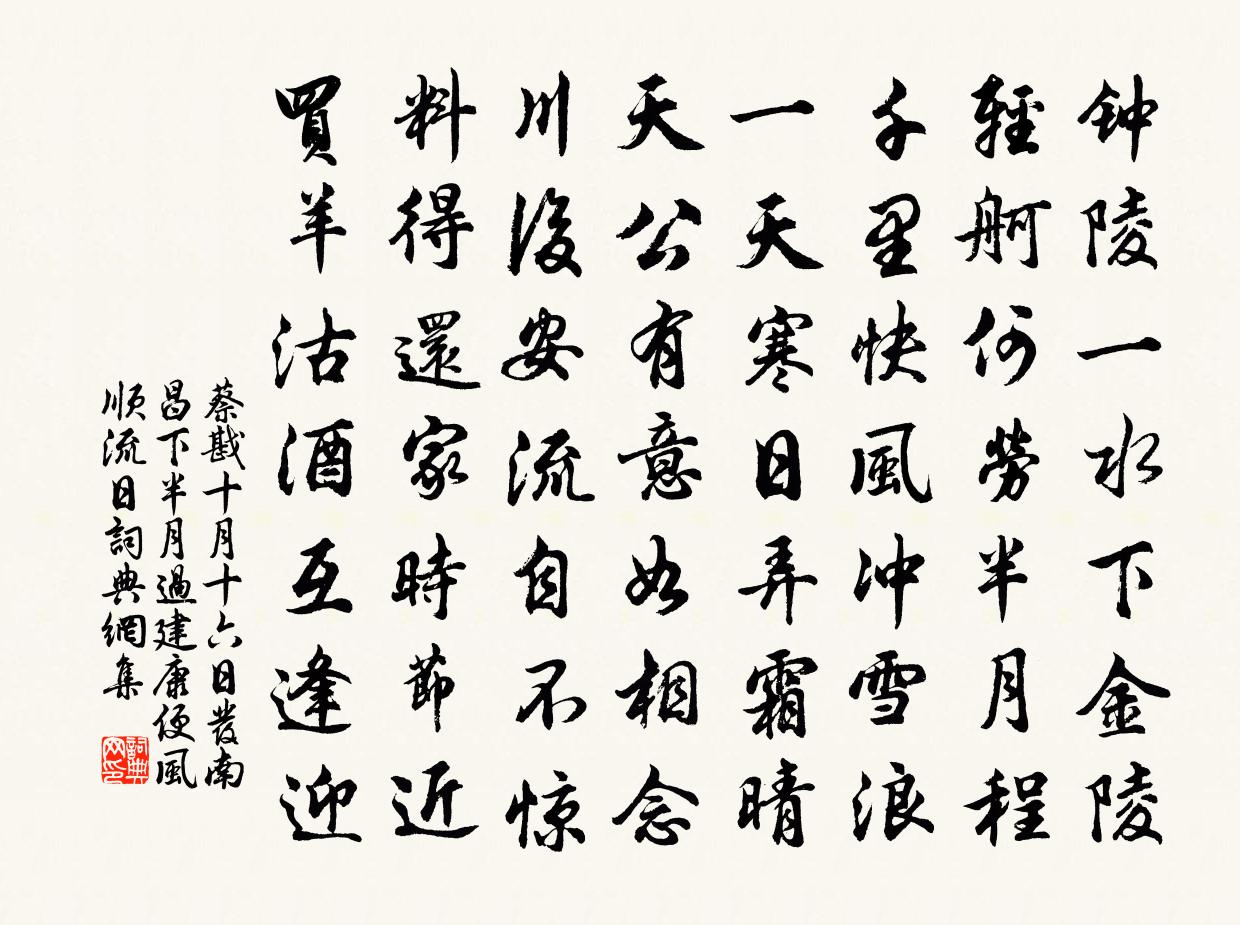 钟陵一水下金陵
輕舸何勞半月程
千里快風冲雪浪
一天寒日弄霜晴
天公有意如相念
川後安流自不惊
料得還家時節近
買羊沽酒互逢迎
蔡戡十月十六日發南
昌下半月過建康便風
順流日詞典網集
詞典网印